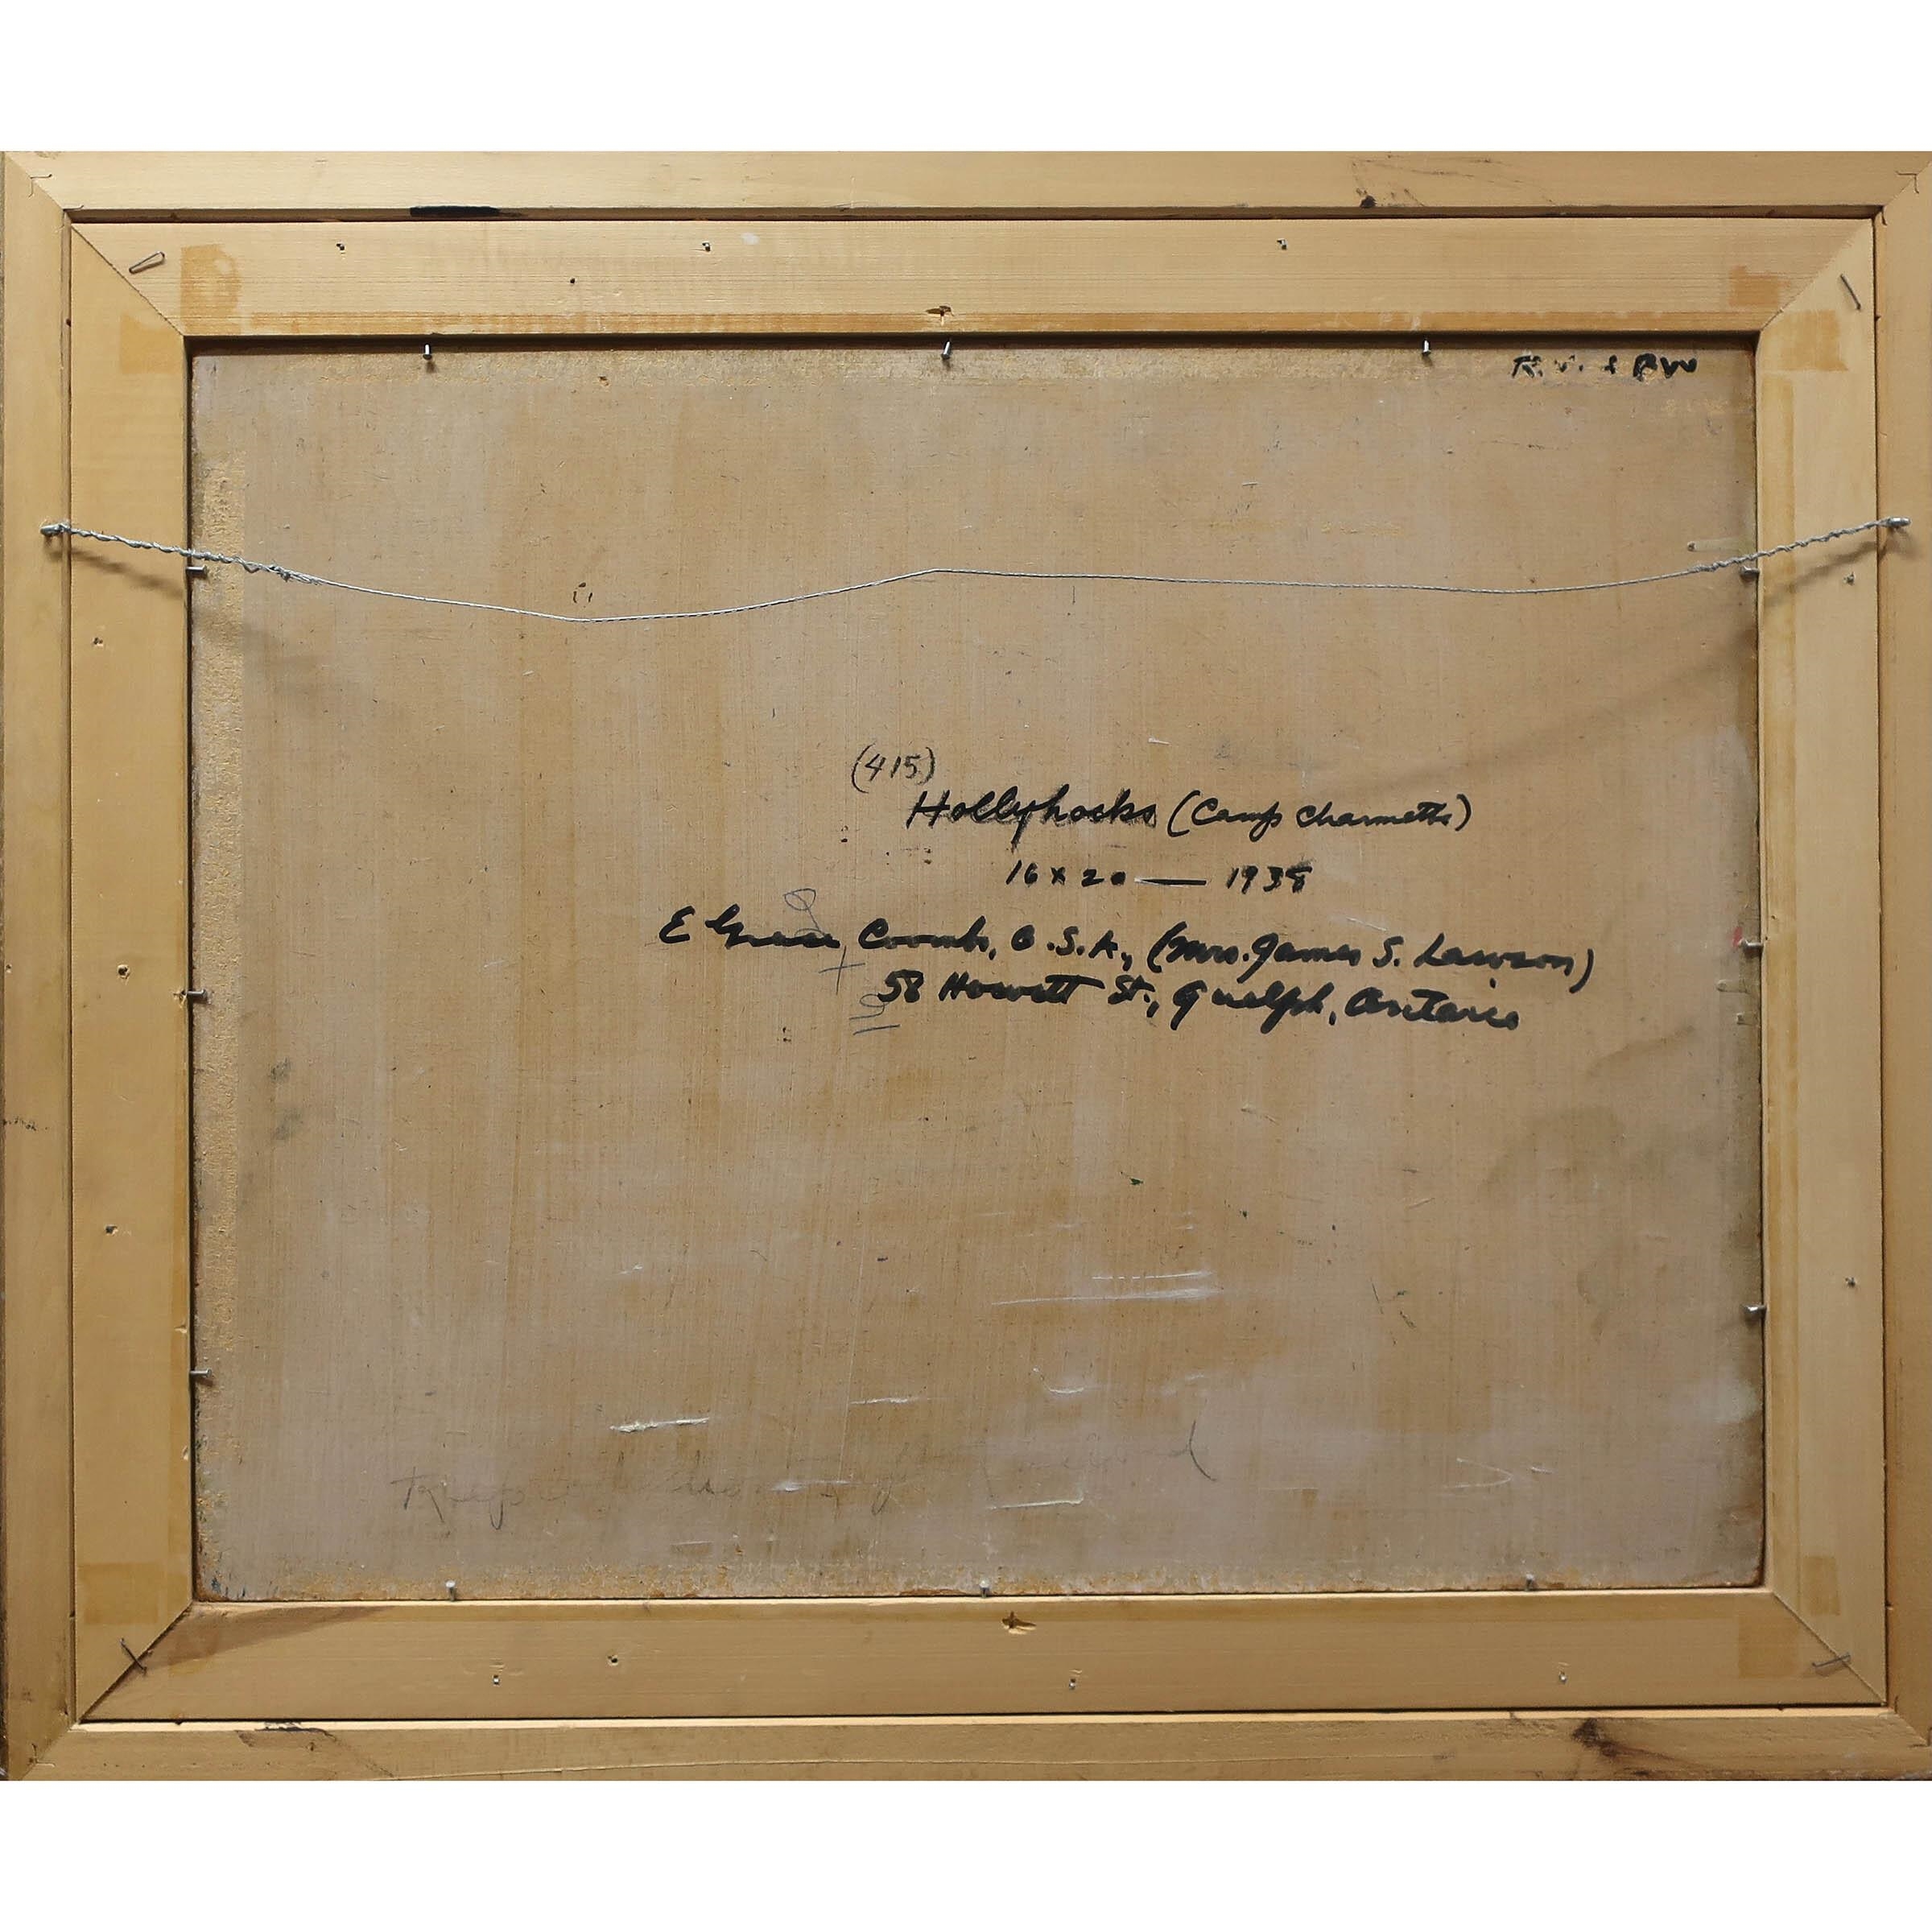 (415)
Hollyhocks (Camp Charmette)
16 x 20 — 1938
E Grace Coombs, O.S.A., (Mrs. James S. Lawson)
58 Howitt St., Guelph, Ontario